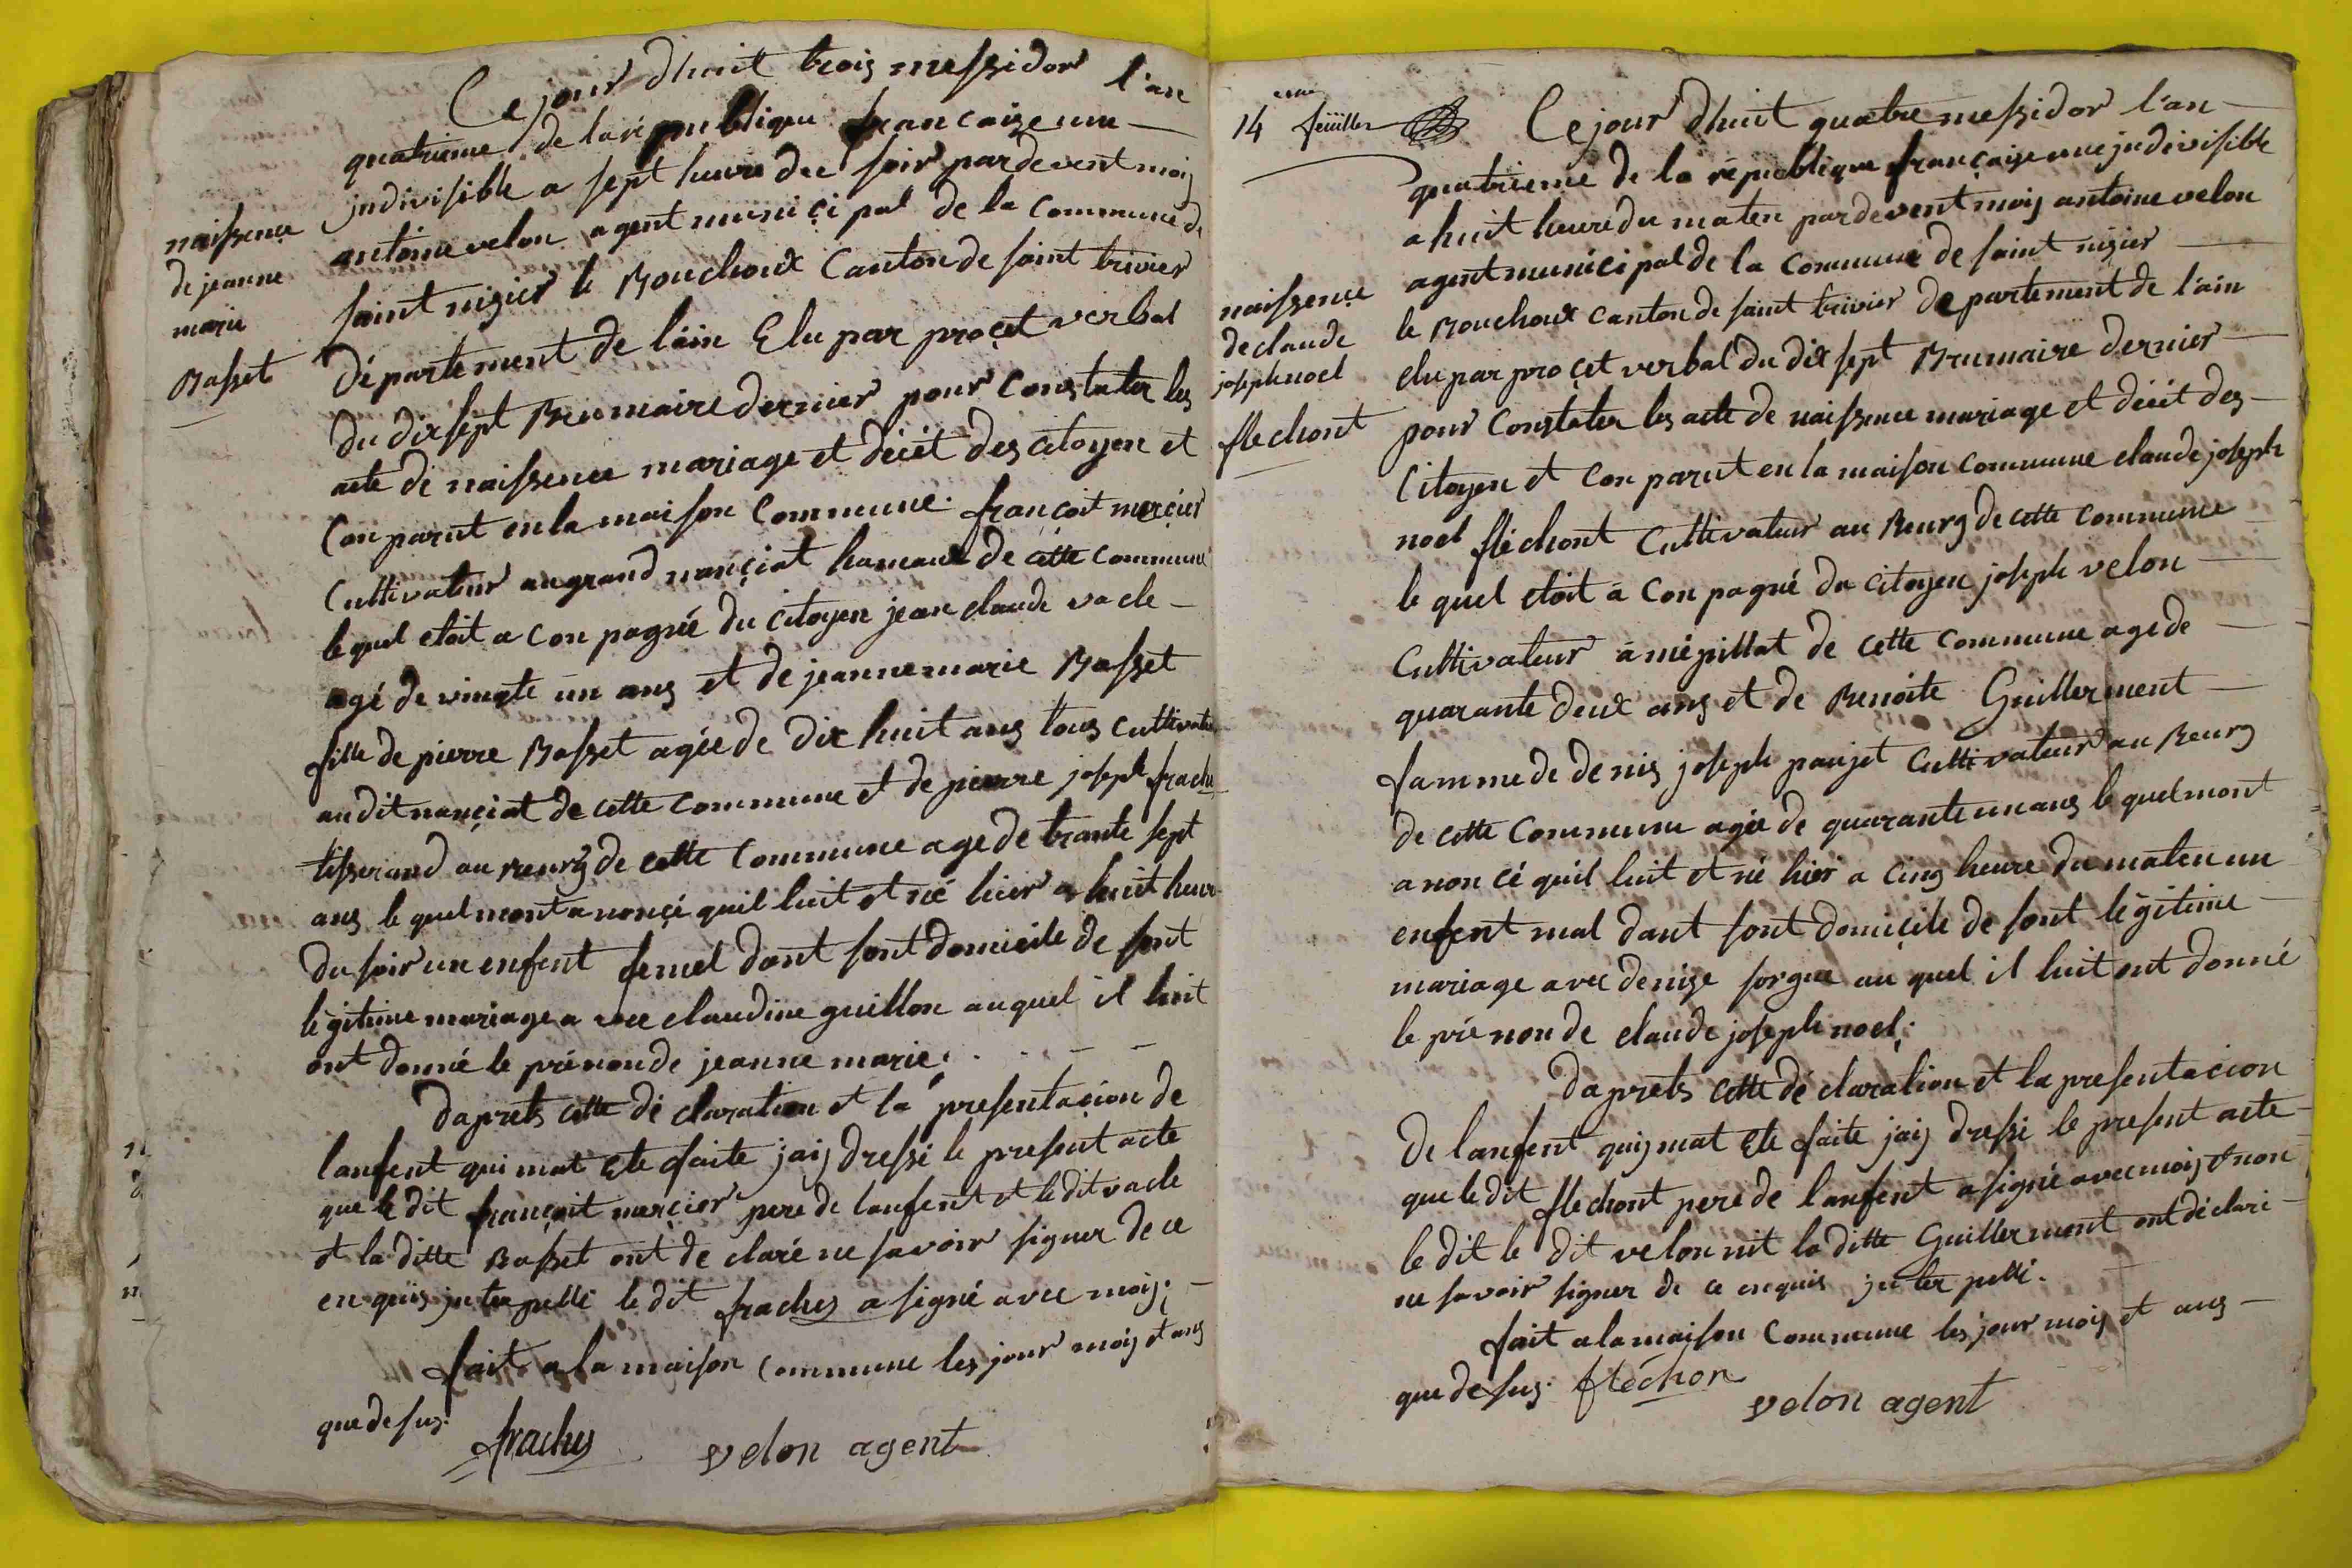 Ce jour d'huit trois messidor l'an
quatrieme de la republique francaise une
jndivisible a sept heure du soir pardevent moij
antoine velon agent municipal de la commune de
saint nizier le Bouchoux Canton de saint trivier
département de l'ain Elu par procet verbal
du dixsept Brumaire dernier pour Constater les
acte de naissence mariage et décét des citoyen et
Con parut en la maison Commune francoit mercier
Cultivateur au grand nançiat hameaux de cette commune
le quel etoit a Con pagné du Citoyen jean claude vacle
agé de vingte un ans et de jeanne marie Basset
fille de pierre Basset agée de dix huit ans tous cultivateur
audit nançiat de cette commune et de pierre joseph frachs
tisserand au Bourg de cette Commune age de trante sept
ans le quel mont anonçé quil luit et né hier a huit heure
du soir un enfent femel dant sont domicile de sont
légitime mariage avec claudine guillon auquel il luit
ont donné le prénon de jeanne marie.
daprets cette déclaration et la presentacion de
lanfent qui mat ete faite jaij dressé le present acte
que le dit françoit merçier pere de lanfent et le dit vacle
et la ditte Basset ont de claré ne savoir signer de ce
en quis jnterpellé le dit frachs a signé avec moij.
fait a la maison Commune les jour mois et ans
que desus.
frachs velon agent
naissençe
de jeanne
marie
Basset
14 feüillex
Ce jour d'huit quatre messidor l'an
quatrieme de la république française une jndivisible
a huit heure du maten pardevent moij antoine velon
agent municipal de la Commune de saint nizier
le Bouchoux canton de saint trivier departement de l'ain
elu par proçet verbal du dix sept Brumaire dernier
pour Constater les acte de naissence mariage et décét des
Citoyen et Con parut en la maison commune claude joseph
noel fléchont Cultivateur au Bourg de cette commune
le quel etoit a Con pagné du citoyen joseph velon
Cultivateur a mépillat de cette commune age de
quarante deux ans et de Benoite Guillerment
famme de denis joseph paujet Cultivateur au Bourg
de cette Commune agée de quarante un ans le quel mont
anoncé quil luit et né hier a cinq heure du maten un
enfent mal dant sont domicile de sont légitime
mariage avec denize sorgue au quel il luit ont donné
le prénon de claude joseph noel.
daprets cette déclaration et la presentacion
de lanfent quij mat ete faite jaij dressé le present acte
que le dit flechont pere de lanfent a signé avec moij et non
le dit le dit velon nit la ditte Guillerment ont déclaré
ne savoir signer de ce enquis jnter pellé.
fait a la maison Commune les jour mois et ans
que desus. fléchon
velon agent
naissençe
de claude
joseph noel
flechont